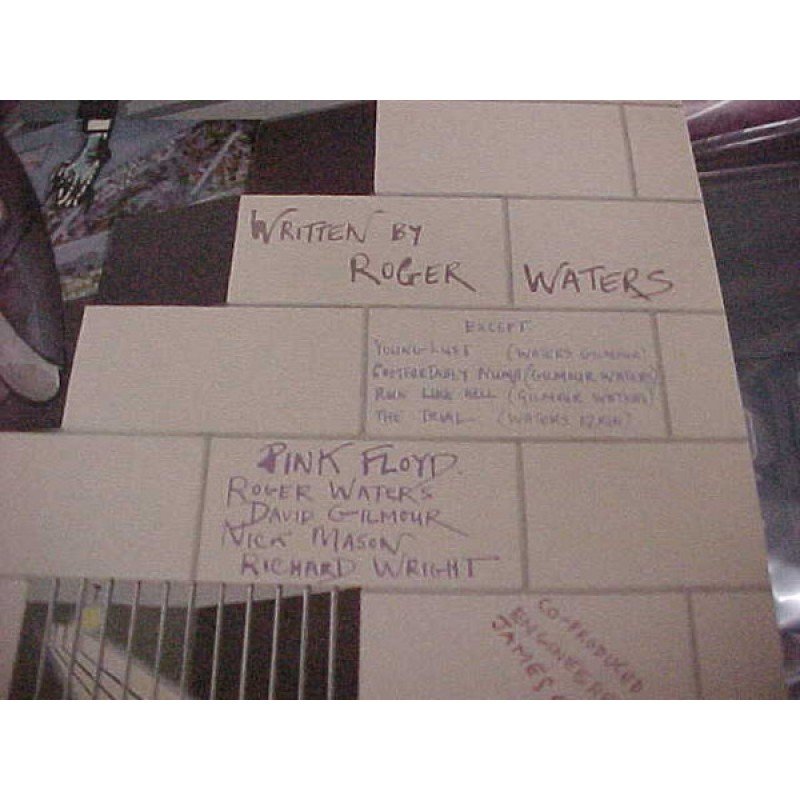 WRITTEN BY
ROGER WATERS
EXCEPT
YOUNG LUST (WATERS GILMOUR)
COMFORTABLY NUMB (GILMOUR WATERS)
RUN LIKE HELL (GILMOUR WATERS)
THE TRIAL (WATERS EZRIN)
PINK FLOYD.
ROGER WATERS
DAVID GILMOUR
NICK MASON
RICHARD WRIGHT
CO-PRODUCED
ENGINEERE
JAMES